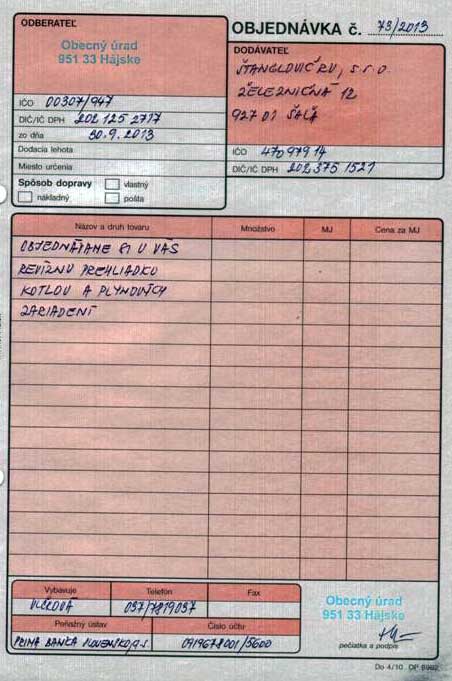 ODBERATEĽ
Obecný úrad
951 33 Hájske
IČO 00307/947
DIČ/IČ DPH 202 125 2717
zo dňa 30.9.2013
Dodacia lehota
Miesto určenia
Spôsob dopravy vlastný
nákladný pošta
OBJEDNÁVKA č. 78/2013
DODÁVATEĽ
ŠTANGLOVIČ RV, s.r.o.
ŽELEZNIČNÁ 12
927 01 ŠAĽA
IČO 470 979 14
DIČ/IČ DPH 202 375 1521
Názov a druh tovaru Množstvo MJ Cena za MJ
OBJEDNÁVAME SI U VÁS
REVÍZNU PREHLIADKU
KOTLOV A PLYNOVÝCH
ZARIADENÍ
Vybavuje Telefón Fax
VLČKOVÁ 037/7819037
Peňažný ústav Číslo účtu
PRIMA BANKA SLOVENSKO, a.s. 0919678001/5600
Obecný úrad
951 33 Hájske
pečiatka a podpis
Do 4/10 OP